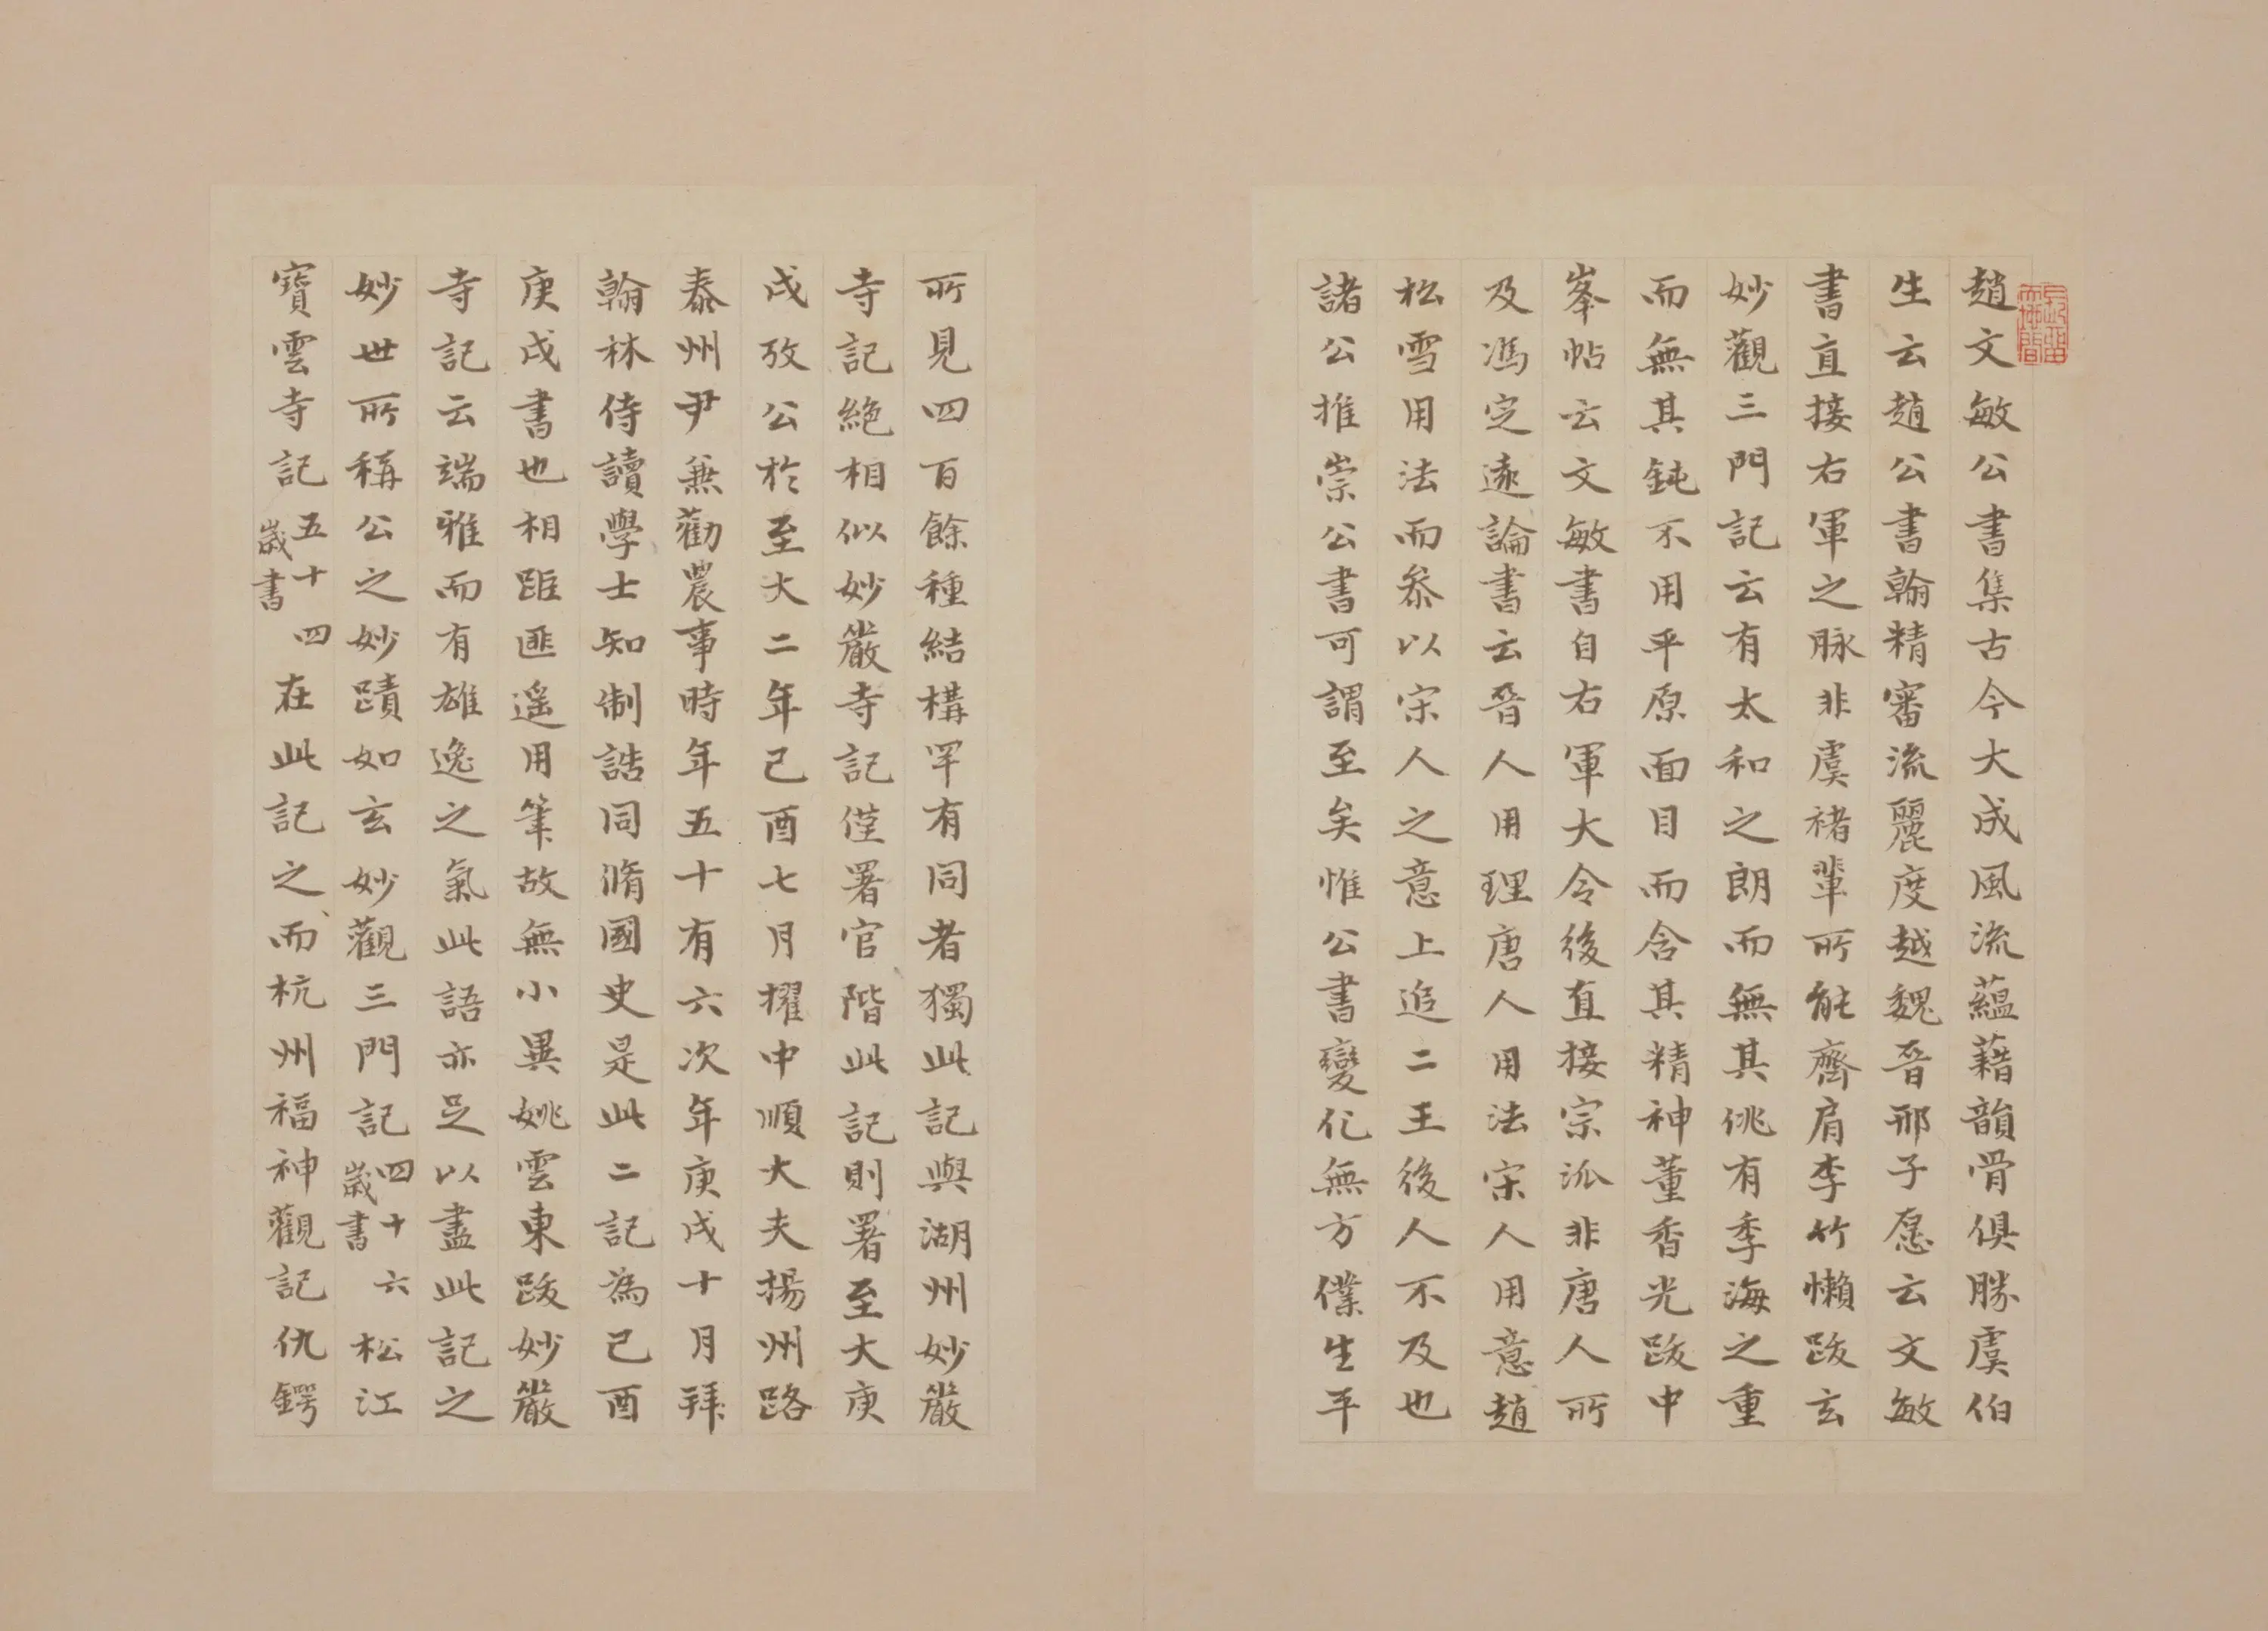 趙文敏公書集古今大成風流蘊藉韻骨俱勝虞伯
生云趙公書翰精審流麗度越魏晉邢子愿云文敏
書直接右軍之脉非虞褚輩所能齊肩李竹懶跋玄
妙觀三門記云有太和之朗而無其佻有季海之重
而無其鈍不用平原面目而含其精神董香光跋中
峯帖云文敏書自右軍大令後直接宗派非唐人所
及馮定遠論書云晉人用理唐人用法宋人用意趙
松雪用法而叅以宋人之意上追二王後人不及也
諸公推崇公書可謂至矣惟公書變化無方僕生平
所見四百餘種結構罕有同者獨此記與湖州妙嚴
寺記絕相似妙嚴寺記僅署官階此記則署至大庚
戌攷公於至大二年己酉七月擢中順大夫揚州路
泰州尹兼勸農事時年五十有六次年庚戌十月拜
翰林侍讀學士知制誥同脩國史是此二記為己酉
庚戌書也相距匪遥用筆故無小異姚雲東跋妙嚴
寺記云端雅而有雄逸之氣此語亦足以盡此記之
妙世所稱公之妙蹟如玄妙觀三門記四十六歲書松江
寶雲寺記五十四歲書在此記之而杭州福神觀記仇鍔